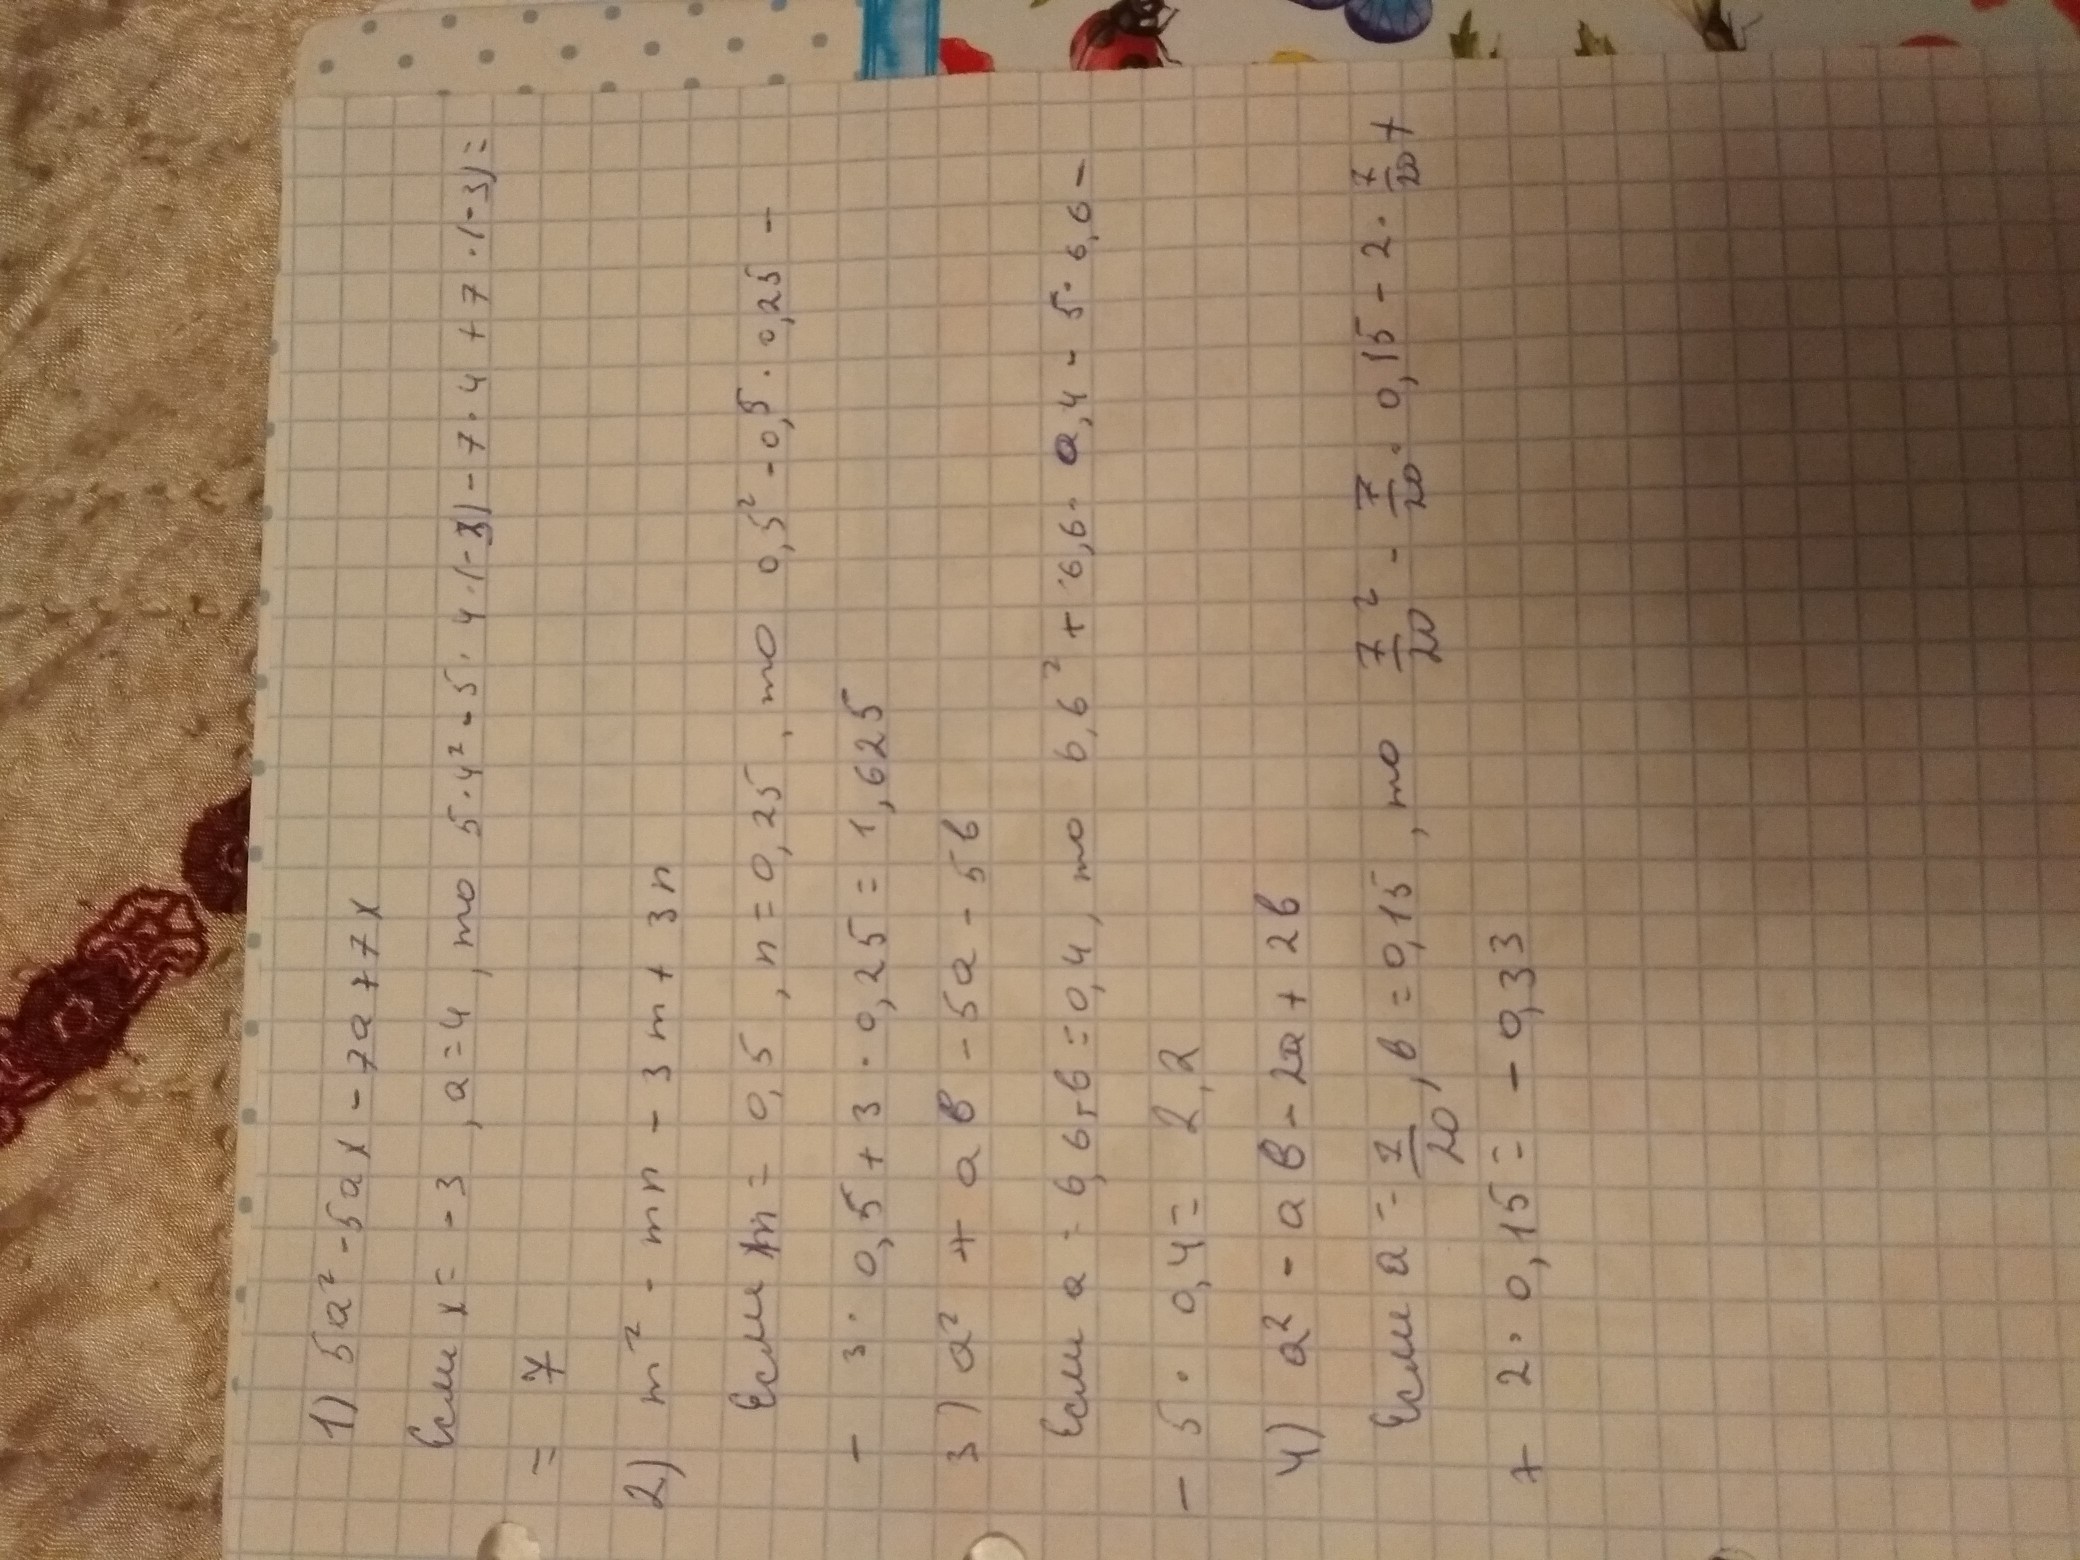 1) 5a² - 5ax - 7a + 7x
Если x = -3, a = 4, то 5·4² - 5·4·(-3) - 7·4 + 7·(-3) =
= 7
2) m² - mn - 3m + 3n
Если m = 0,5, n = 0,25, то 0,5² - 0,5·0,25 -
- 3·0,5 + 3·0,25 = 1,625
3) a² + aв - 5a - 5в
Если a = 6,6, в = 0,4, то 6,6² + 6,6·0,4 - 5·6,6 -
- 5·0,4 = 2,2
4) a² - aв - 2a + 2в
Если a = 7/20, в = 0,15, то 7²/20 - 7/20·0,15 - 2·7/20 +
+ 2·0,15 = -0,33